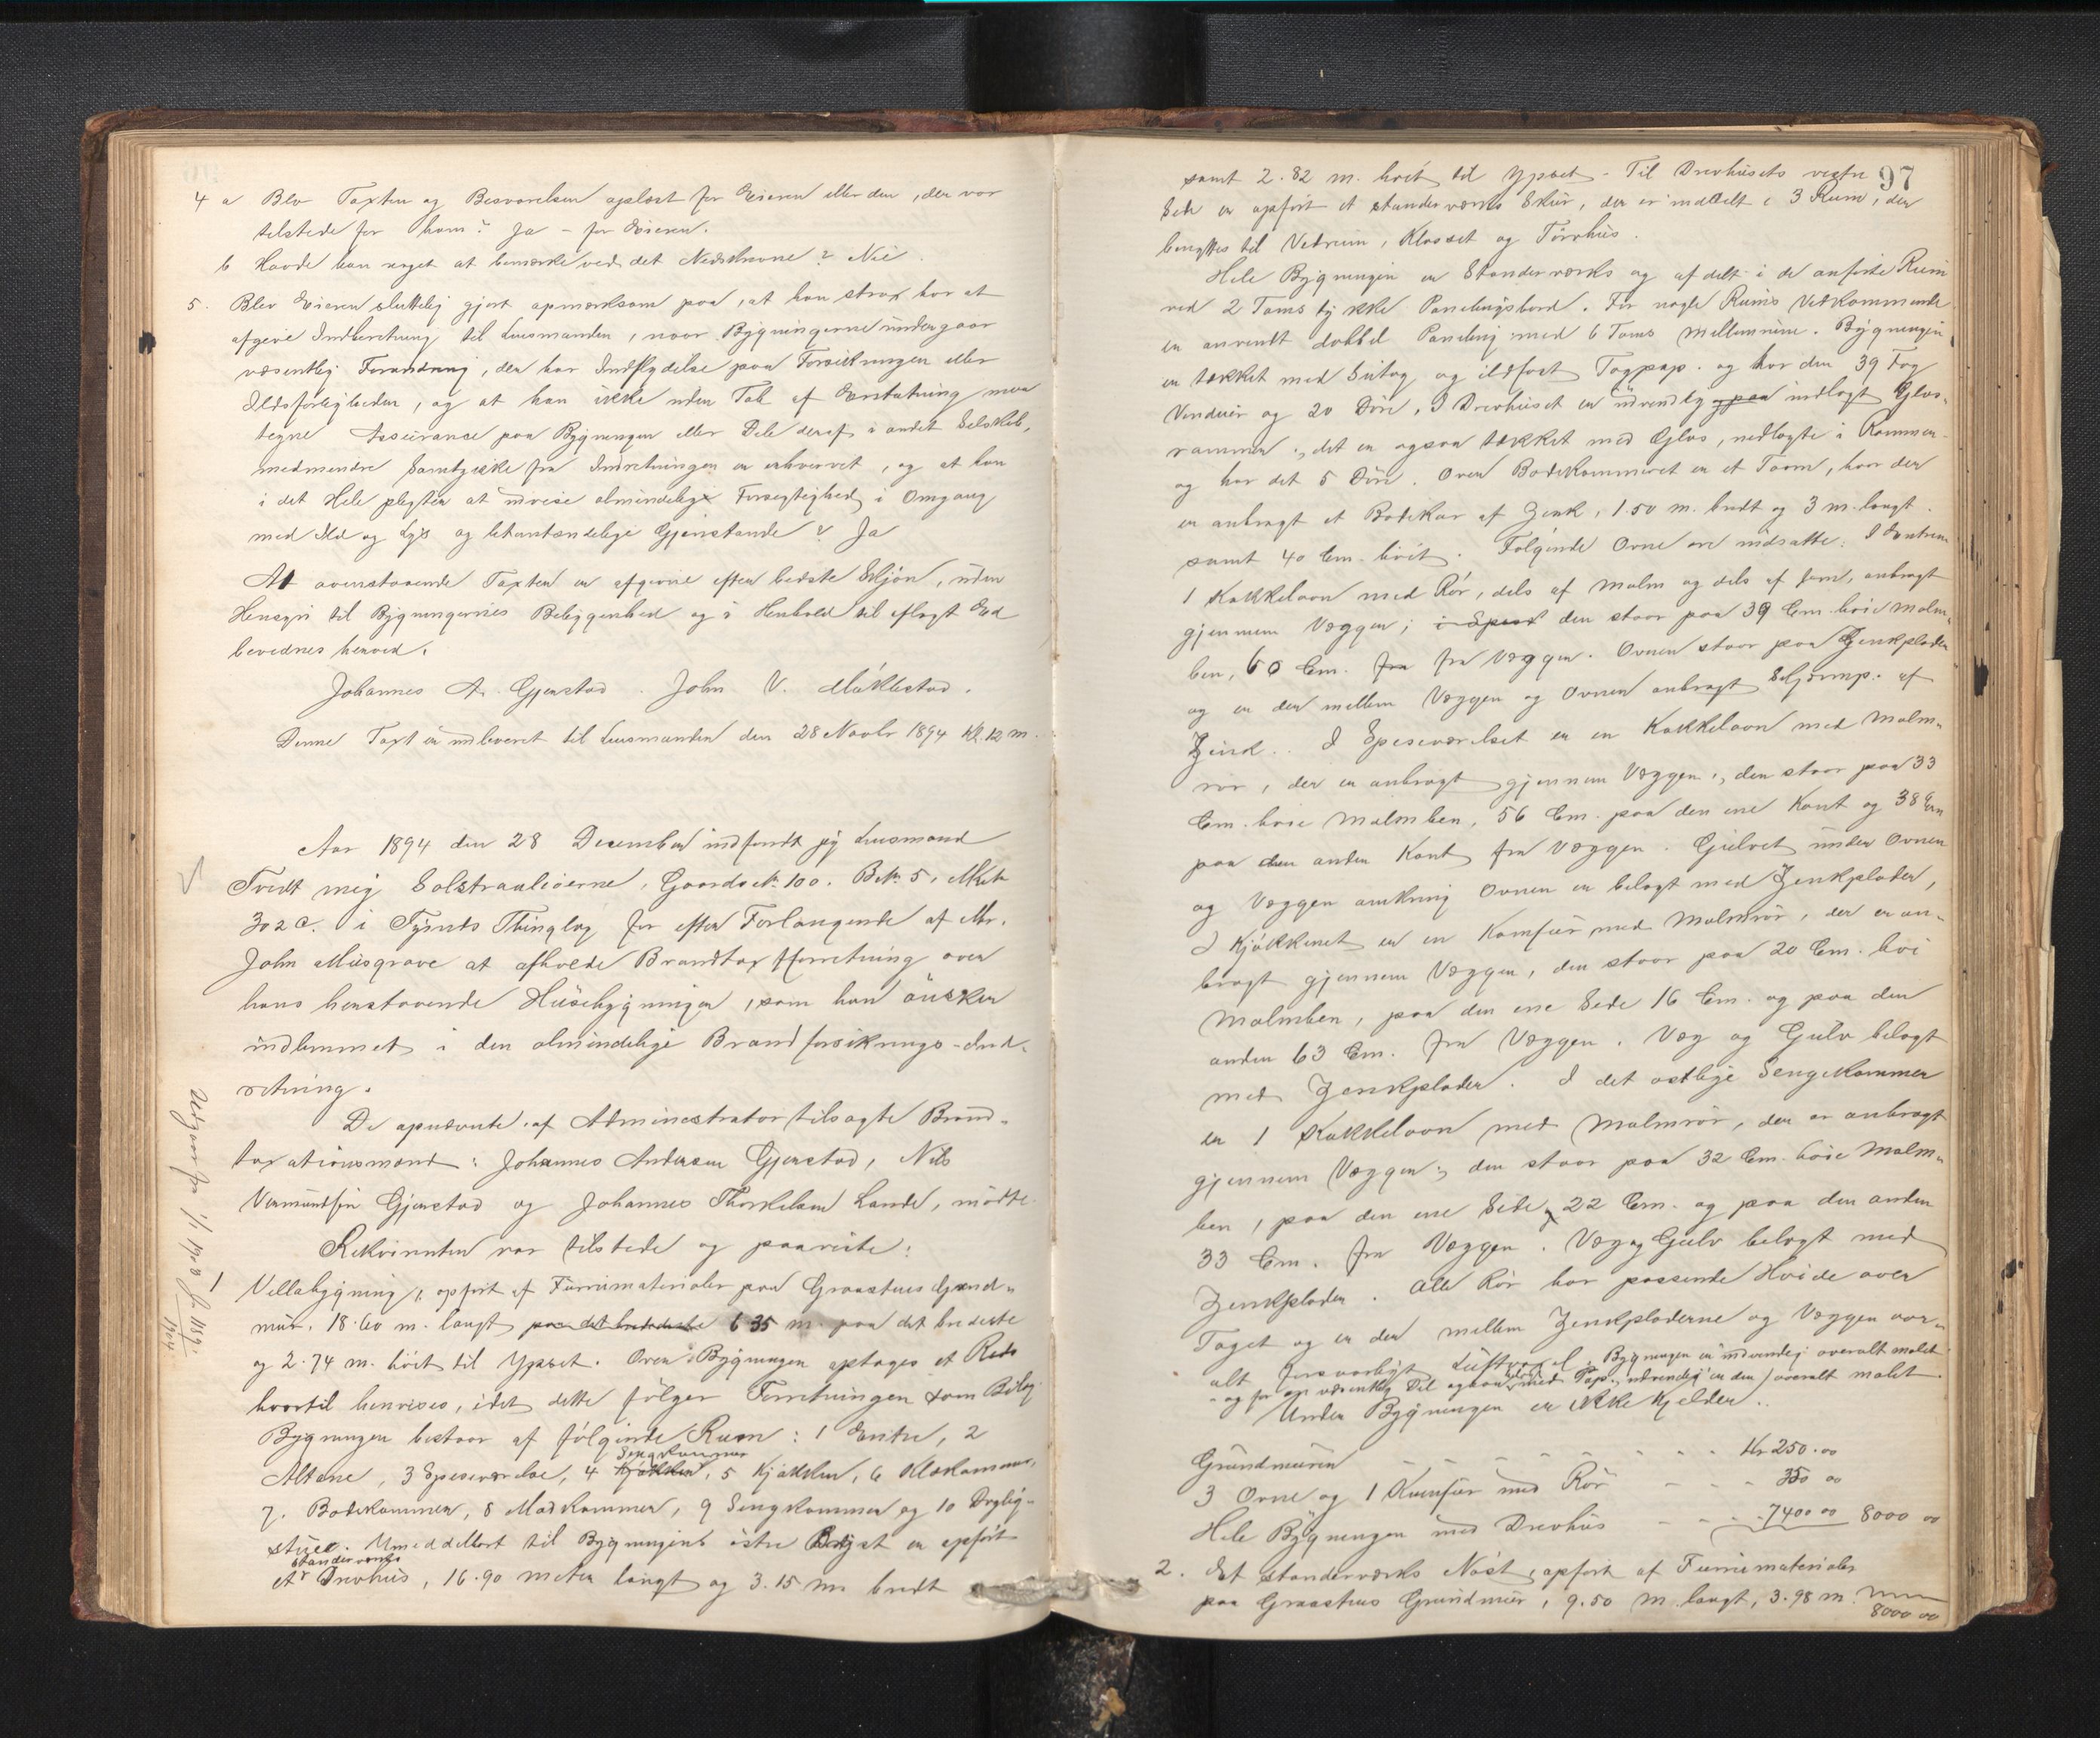 4 a Blev Taxten og Besvarelsen oplæst for Eieren eller den, der var
tilstede for ham? Ja - for Eieren.
b Havde han noget at bemærke ved det Nedskrevne? Nei.
5. Blev Eieren sluttelig gjort opmærksom paa, at han strax bør at
afgive Indberetning til Lensmanden, naar Bygningerne undergaar
væsentlig Forandring, der har Indflydelse paa Forsikringen eller
Ildsfarligheden, og at han ikke uden Tab af Erstatning maa
tegne Assurance paa Bygningen eller Dele deraf i andet Selskab,
medmindre Samtykke fra Indretningen er erhvervet, og at han
i det Hele pligter at udvise almindelig Forsigtighed i Omgang
med Ild og Lys og letantændelige Gjenstande? Ja
At ovenstaaende Taxter er afgivne efter bedste Skjøn, uden
Hensyn til Bygningernes Beliggenhed og i Henhold til aflagt Ed
bevidnes herved.
Johannes A. Gjerstad. John V. Møklestad.
Denne Taxt er indleveret til Lensmanden den 28 Novbr 1894 Kl. 12 m.
Aar 1894 den 28 December indfandt jeg Lensmand
Tvedt mig Solstraaleøerne, Gaards No. 100. B. No. 5, Mk
302 c. i Tysnes Thinglag for efter Forlangende af Mr.
John Musgrave at afholde Brandtaxtforretning over
hans henstaaende Husebygninger, som han ønsker
indlemmet i den almindelige Brandforsikrings-Ind-
retning.
De opnævnte, af Administrator tilsagte Brand-
taxationsmænd: Johannes Andersen Gjerstad, Nils
Vermundsen Gjerstad og Johannes Thorkelsen Lande, mødte.
Rekvirenten var tilstede og paaviste:
1 Villabygning, opført af Furrumaterialer paa Graastens Grund-
mur. 18.60 m. langt paa det bredeste 6 35 m. paa det bredeste
og 2.74 m. høit til Ypset. Over Bygningen optages et Rids
hvortil henvises, idet dette følger Forretningen som Bilag
Bygningen bestaar af følgende Rum: 1 Entre, 2
Sengekammer
Altane, 3 Spiseværelse, 4 Kjøkken, 5 Kjøkken, 6 Klækammer,
7. Badekammer, 8 Madkammer, 9 Sengekammer og 10 Daglig-
stue. Umeddelbart til Bygningens østre er opført
standerværks
et Drevhus, 16.90 meter langt og 3.15 m bredt
Udgaar fra 1/1 1903
97
samt 2.82 m. høit til Ypset - Til Drevhusets vestre
Side er opført et standerværks Skur, der er inddelt i 3 Rum, der
benyttes til Vedrum, Kloset og Tørrhus.
Hele Bygningen er Standerværks og afdelt i de anførte Rum
ved 2 Toms tykke Panelingsbord. For nogle Rums Vedkommende
er anvendt dobbel Paneling med 6 Toms mellemrum. Bygningen
er tækket med Sutag og ildfast Tagpap. og har den 39 Fag
Vinduer og 20 Døre, I Drevhuset er udvendig ogsaa indlagt Glas-
rammer, det er ogsaa tækket med Glas, nedlagte i Rammer
og har det 5 Døre. Over Badekammeret er et Taarn, hvor der
er anbragt et Badekar af Zink, 1.50 m. bredt og 3 m. langt
samt 40 Cm. høit. Følgende Ovne ere indsatte: I Entreen
1 Kakkelovn med Rør, dels af Malm og dels af Jern, anbragt
gjennem Væggen; i Spise den staar paa 39 Cm. høie Malm-
ben, 60 Cm. fra fra Væggen. Ovnen staar paa Zenkplader
og er der mellem Væggen og Ovnen anbragt af
Zink. I Spiseværelset er en Kakkelovn med Malm-
rør, der er anbragt gjennem Væggen, den staar paa 33
Cm. høie Malmben, 56 Cm. paa den ene Kant og 38 Cm
paa den anden Kant fra Væggen. Gulvet under Ovnen
og Væggen omkring Ovnen er belagt med Zenkplader,
I Kjøkkenet er en Komfur med Malmrør, der er an-
bragt gjennem Væggen, den staar paa 20 Cm. høi
Malmben, paa den ene Side 16 Cm. og paa den
anden 63 Cm. fra Væggen. Væg og Gulv belagt
med Zenkplader. I det østlige Sengekammer
er 1 Kakkelovn med Malmrør, der er anbragt
gjennem Væggen; den staar paa 32 Cm. høie Malm-
ben, paa den ene Side 22 Cm. og paa den anden
33 Cm. fra Væggen. Væg og Gulv belagt med
Zenkplader. Alle Rør har passende Høide over
Taget og er der mellem Zenkpladerne og Væggen over-
alt forsvarligt. Bygningen er indvendig overalt malet
og for en væsentlig Del ogsaa med Pap. udvendig er den overalt malet.
Under Bygningen er ikke Kjelder.
Grundmuren - - - Kr 250.00
3 Ovne og 1 Komfur med Rør - - - 350 00
Hele Bygningen med Drevhus - - - 7400 00 8000 00
2. Et standerværks Nøst, opført af Furrumaterialer
paa Graastens Grundmur, 9.50 m. langt, 3.98 m.
8000 00